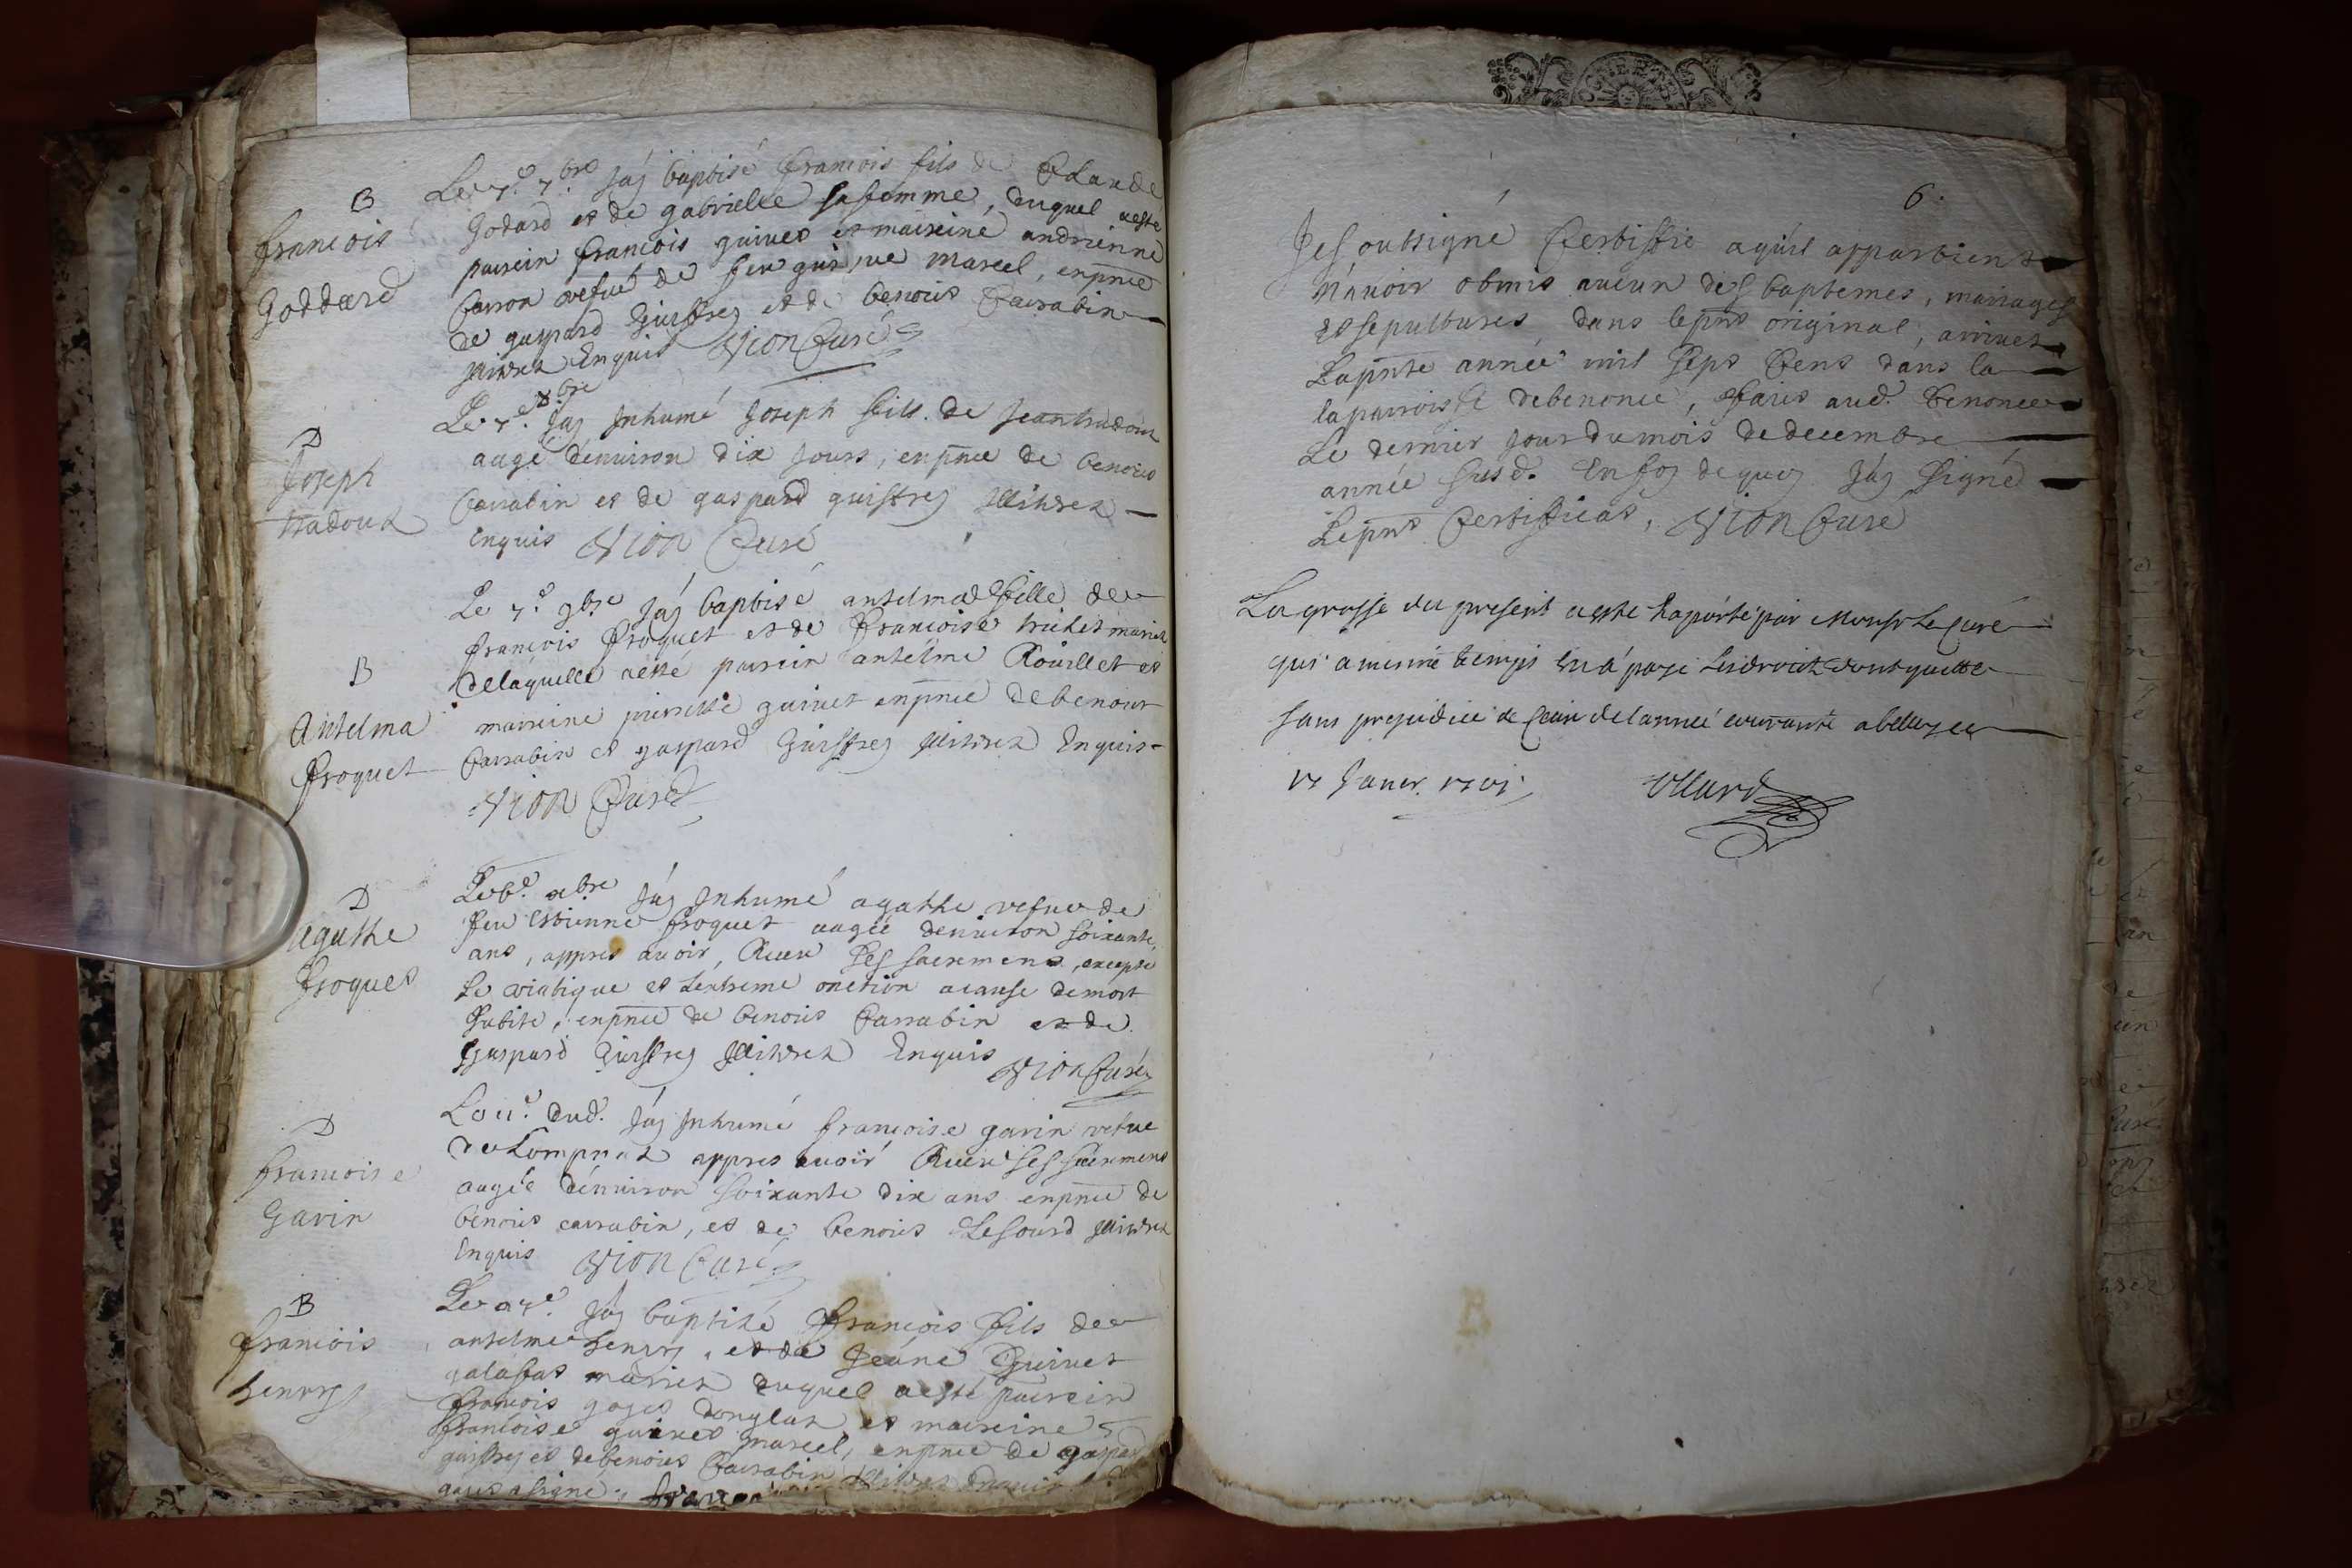 B
francois
Goddard
Le 7.e 7bre Jáy baptisé francois fils de Claude
Godard et de gabrielle sa femme, duquel aesté
parrein francois guinet et maireine andrienne
Carron vefue de feu marcel, enpnce
de gaspard Guiffrey et de benoist Carrabin
illitrez Enquis Vion Curé
D
Joseph
tradoux
Le 7.e 8bre Jay Inhumé Joseph fils de Jean tradoux
aagé dénuiron dix Jours, enpnce de benoist
Carrabin et de gaspard guiffrey illitrez
Enquis Vion Curé
B
Antelma
froquet
Le 7.e 9bre Jáy baptisé antelma fille de
francois froquet et de francoise mariez
delaquelle aesté parrein antelme Rouillet et
marreine pierrette guinet enpnce debenoist
Carrabin et gaspard Guiffrey illitrez Enquis
Vion Curé
D
Agathe
froquet
Le 6.e xbre Jáy Inhumé agathe vefue de
feu Estienne froquet aagée denuiron soixante
ans, appres auoir, Receu ses sacremens, excepté
Le viatique et Lextreme onction acause demort
subite, enpnce de benoist Carrabin et de
Gaspard Guiffrey illitrez Enquis Vion Curé
D
francoise
Gavin
Le 11.e dud. Jáy Inhumé francoise gavin vefue
de Lompnaz appres auoir Receu ses sacremens
aagée dénuiron soixante dix ans enpnce de
benoist carrabin, et de benoist Lesourd illitrez
Enquis Vion Curé
B
francois
henrry
Le Jáy baptisé francois fils de
antelme henrry, et de Jeane Guinet
galafat mariez duquel aesté parrein
francois et maireine
francoise guinet marcel, enpnce de gaspard
guiffrey et debenoist Carrabin illitrez Enquis
signé
6.
Jesoubsigné Certiffie aquil appartient
Náuoir obmis aucun des baptemes, mariages
et sepultures dans lepnt original, arriuez
Lapnte année mil sept Cens dans la
laparroisse debenonce, ffait aud. benonce
Le dernier Jour dumois dedecembre
année susd. Enfoy dequoy Jáy signé
Lepnt Certifficat, Vion Curé
La grosse du present aeste raporté par Monsr Le curé
qui a mesme temps en a payé Les droits dont quitte
sans prejudice de Ceux de lannée courante a belley ce
17 Janer. 1701.